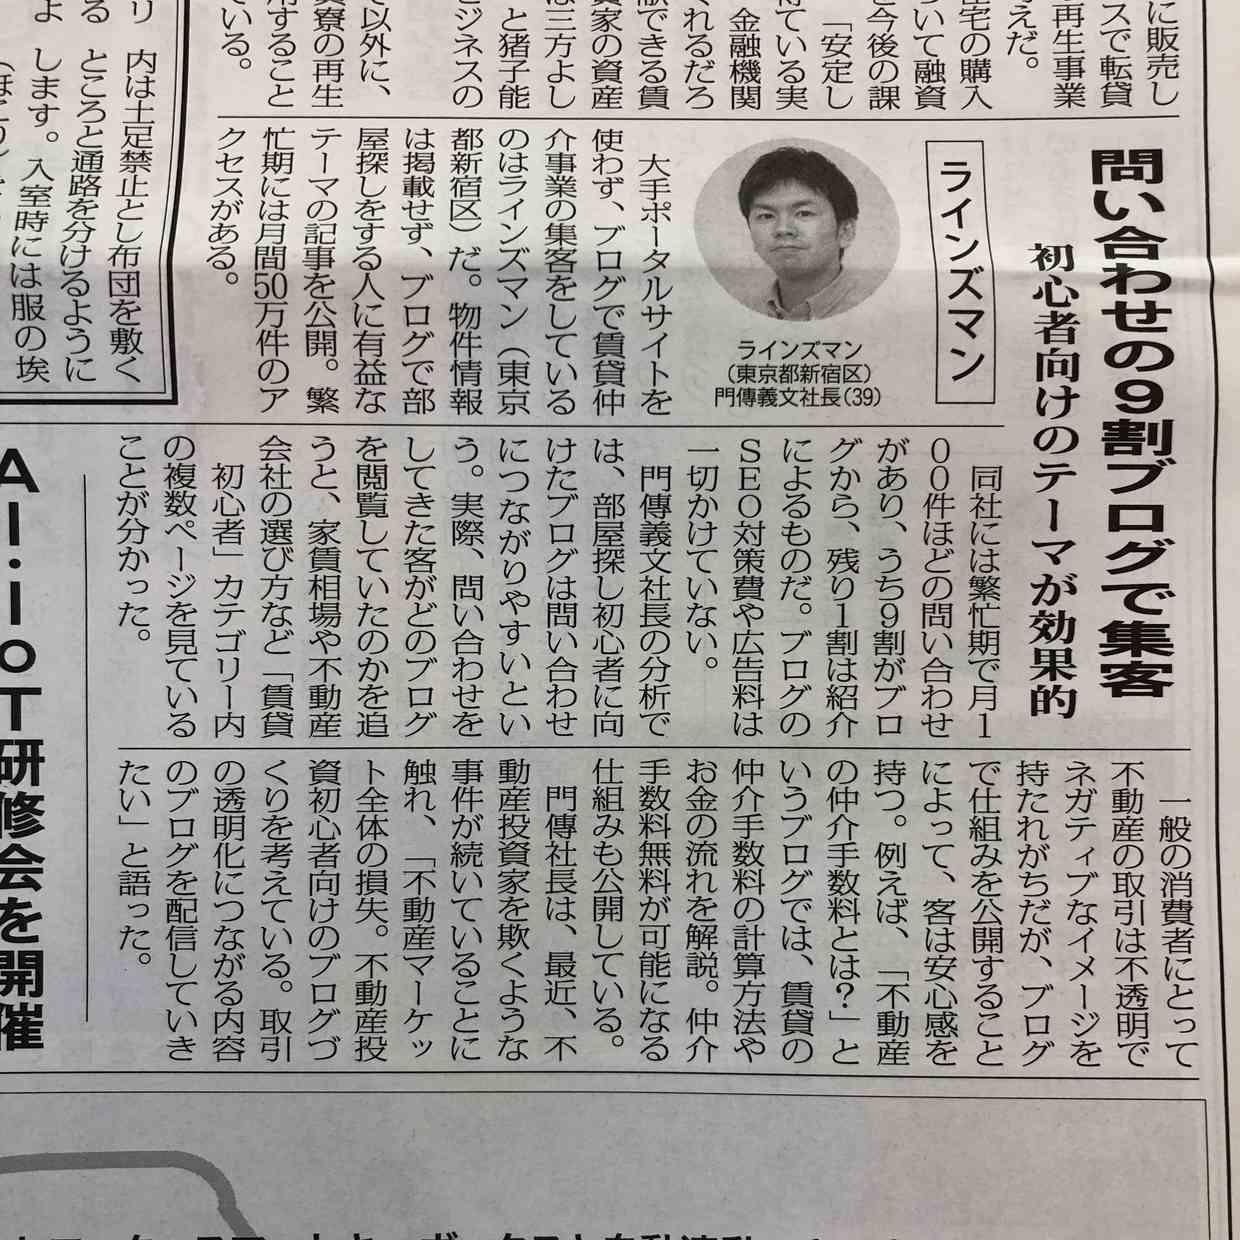 に販売し
スで転貸
再生事業
考えだ。
住宅の購入
ついて融資
を今後の課
「安定し
得ている実
金融機関
くれるだろ
献できる賃
資家の資産
は三方よし
と猪子能
ビジネスの
て以外に、
員寮の再生
用すること
ている。
問い合わせの9割ブログで集客
初心者向けのテーマが効果的
ラインズマン
ラインズマン
(東京都新宿区)
門傳義文社長(39)
大手ポータルサイトを
使わず、ブログで賃貸仲
介事業の集客をしている
のはラインズマン(東京
都新宿区)だ。物件情報
は掲載せず、ブログで部
屋探しをする人に有益な
テーマの記事を公開。繁
忙期には月間50万件のア
クセスがある。
同社には繁忙期で月1
00件ほどの問い合わせ
があり、うち9割がブロ
グから、残り1割は紹介
によるものだ。ブログの
SEO対策費や広告料は
一切かけていない。
門傳義文社長の分析で
は、部屋探し初心者に向
けたブログは問い合わせ
につながりやすいとい
う。実際、問い合わせを
してきた客がどのブログ
を閲覧していたのかを追
うと、家賃相場や不動産
会社の選び方など「賃貸
初心者」カテゴリー内
の複数ページを見ている
ことが分かった。
一般の消費者にとって
不動産の取引は不透明で
ネガティブなイメージを
持たれがちだが、ブログ
で仕組みを公開すること
によって、客は安心感を
持つ。例えば、「不動産
の仲介手数料とは?」と
いうブログでは、賃貸の
仲介手数料の計算方法や
お金の流れを解説。仲介
手数料無料が可能になる
仕組みも公開している。
門傳社長は、最近、不
動産投資家を欺くような
事件が続いていることに
触れ、「不動産マーケッ
ト全体の損失。不動産投
資初心者向けのブログづ
くりを考えている。取引
の透明化につながる内容
のブログを配信していき
たい」と語った。
内は土足禁止とし布団を敷く
ところと通路を分けるように
します。入室時には服の埃
AI・IoT研修会を開催